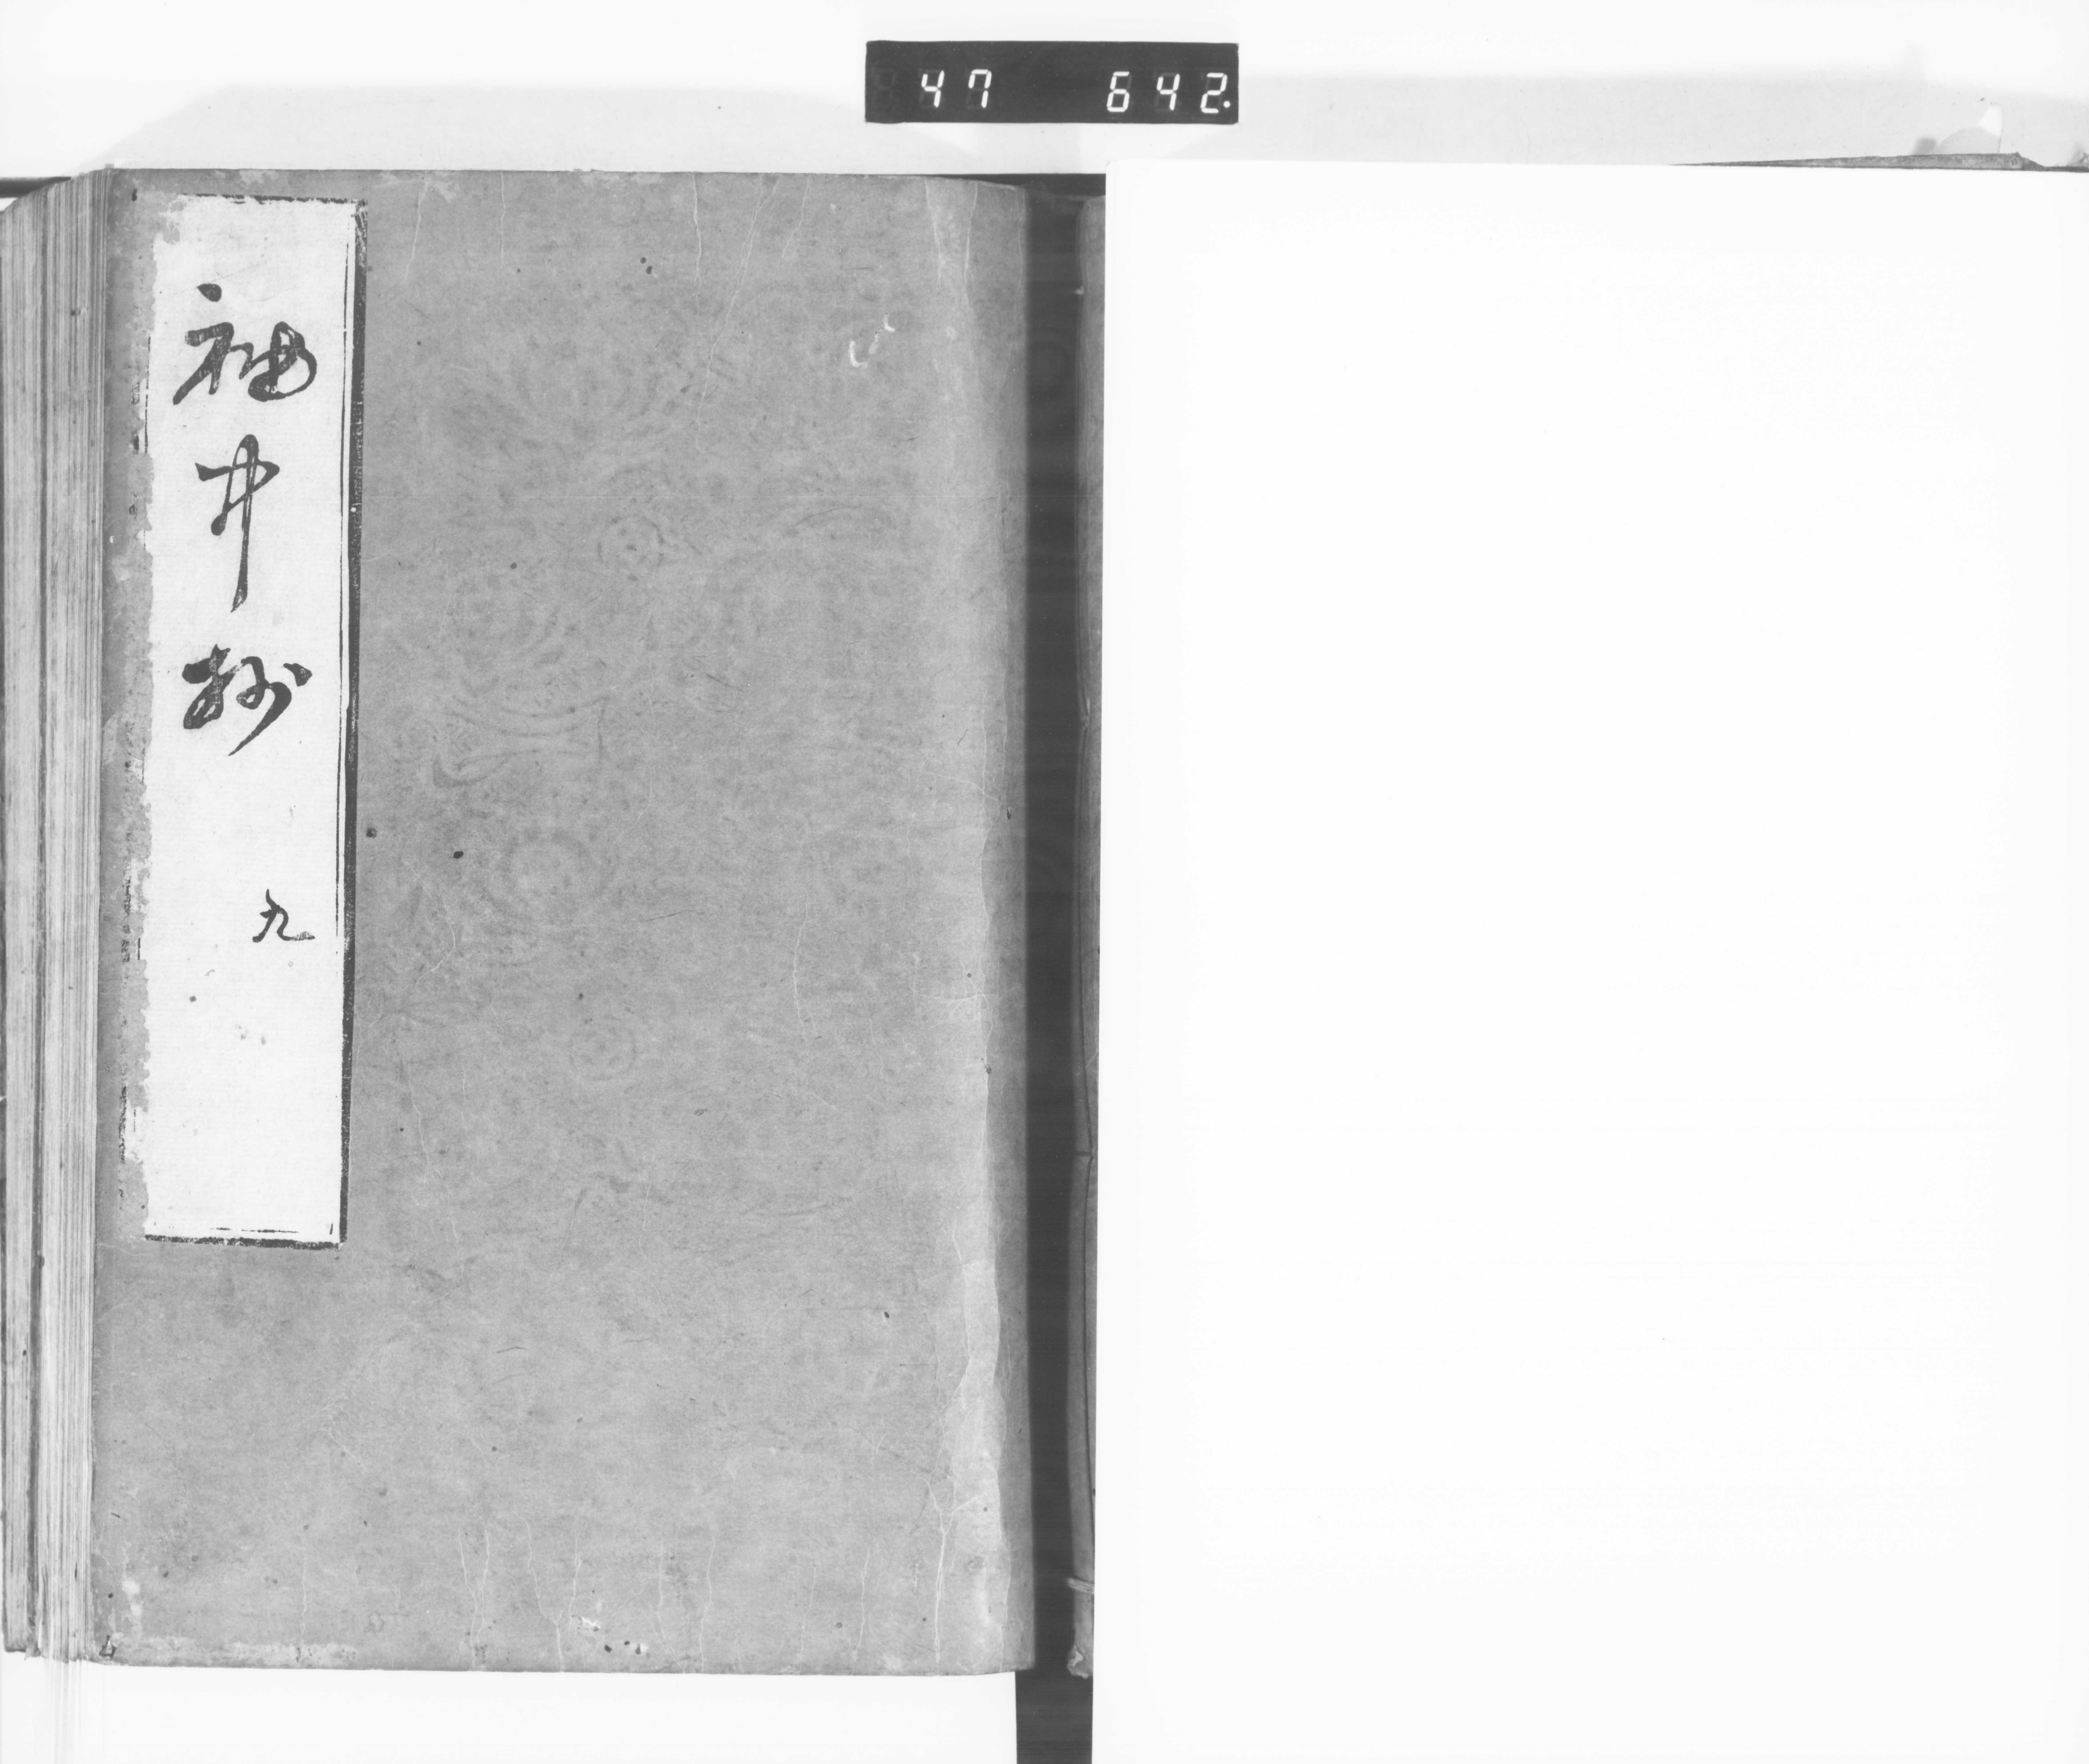 47 642.
袖中抄 九